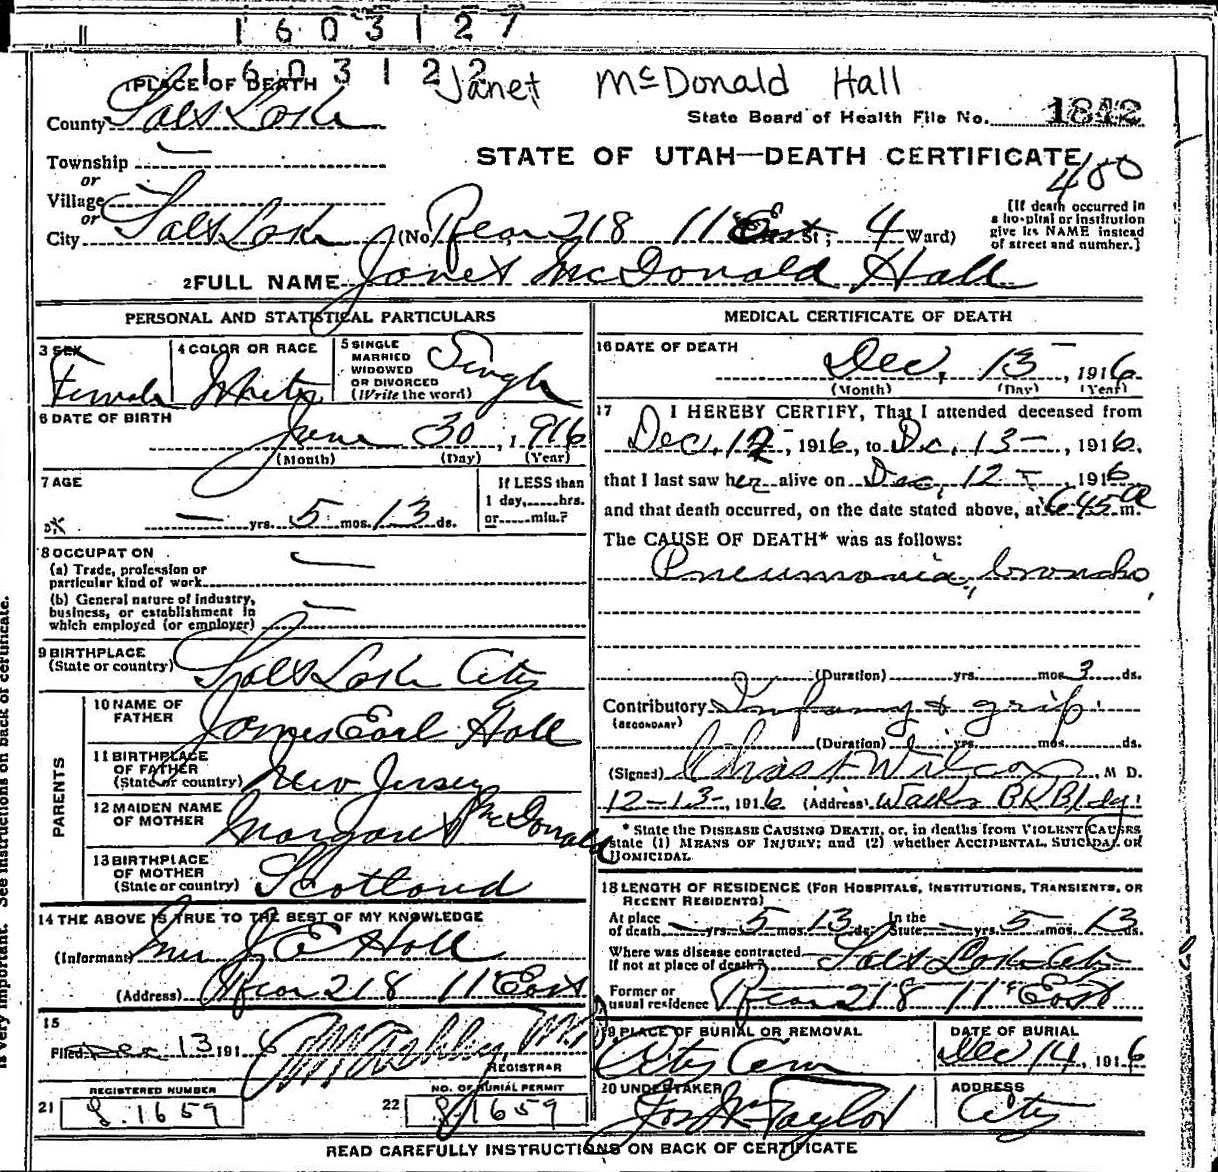 1603127
1603122
Janet McDonald Hall
1 PLACE OF DEATH
County Salt Lake
State Board of Health File No. 1842
Township —
STATE OF UTAH—DEATH CERTIFICATE
or
400
Village
or
City Salt Lake (No. Rear 218 11 East St; 4 Ward)
[If death occurred in
a hospital or institution
give its NAME instead
of street and number.]
2 FULL NAME Janet McDonald Hall
PERSONAL AND STATISTICAL PARTICULARS
3 SEX
Female
4 COLOR OR RACE
White
5 SINGLE
MARRIED
WIDOWED
OR DIVORCED
(Write the word)
Single
6 DATE OF BIRTH
June 30, 1916
(Month) (Day) (Year)
7 AGE
— yrs. 5 mos. 13 ds.
If LESS than
1 day, hrs.
or min.?
8 OCCUPATION —
(a) Trade, profession or
particular kind of work
(b) General nature of industry,
business, or establishment in
which employed (or employer) —
9 BIRTHPLACE
(State or country) Salt Lake City
PARENTS
10 NAME OF
FATHER James Earl Hall
11 BIRTHPLACE
OF FATHER
(State or country) New Jersey
12 MAIDEN NAME
OF MOTHER Margaret McDonald
13 BIRTHPLACE
OF MOTHER
(State or country) Scotland
14 THE ABOVE IS TRUE TO THE BEST OF MY KNOWLEDGE
(Informant) Mrs J E Hall
(Address) Rear 218 11 East
15
Filed Dec 13 1916
REGISTRAR
REGISTERED NUMBER
21 8.1659
NO. OF BURIAL PERMIT
22 8.1659
MEDICAL CERTIFICATE OF DEATH
16 DATE OF DEATH
Dec. 13 —, 1916
(Month) (Day) (Year)
17 I HEREBY CERTIFY, That I attended deceased from
Dec. 12 -, 1916, to Dec. 13 —, 1916,
that I last saw her alive on Dec. 12 -, 1916
and that death occurred, on the date stated above, at 6:45 a m.
The CAUSE OF DEATH* was as follows:
Pneumonia, broncho,
(Duration) yrs. mos. 3 ds.
Contributory Infancy & grip.
(SECONDARY)
(Duration) yrs. mos. ds.
(Signed) Chas F Wilcox, M D.
12-13-, 1916 (Address) Walker Bk Bldg.
* State the DISEASE CAUSING DEATH, or, in deaths from VIOLENT CAUSES
state (1) MEANS OF INJURY; and (2) whether ACCIDENTAL, SUICIDAL OR
HOMICIDAL
18 LENGTH OF RESIDENCE (FOR HOSPITALS, INSTITUTIONS, TRANSIENTS, OR
RECENT RESIDENTS)
At place
of death — yrs. 5 mos. 13 ds. In the
State — yrs. 5 mos. 13 ds.
Where was disease contracted
If not at place of death? Salt Lake City
Former or
usual residence Rear 218 11 East
19 PLACE OF BURIAL OR REMOVAL
City Cem
DATE OF BURIAL
Dec 14, 1916
20 UNDERTAKER
Jos Wm Taylor
ADDRESS
City
READ CAREFULLY INSTRUCTIONS ON BACK OF CERTIFICATE
is very important. See instructions on back of certificate.